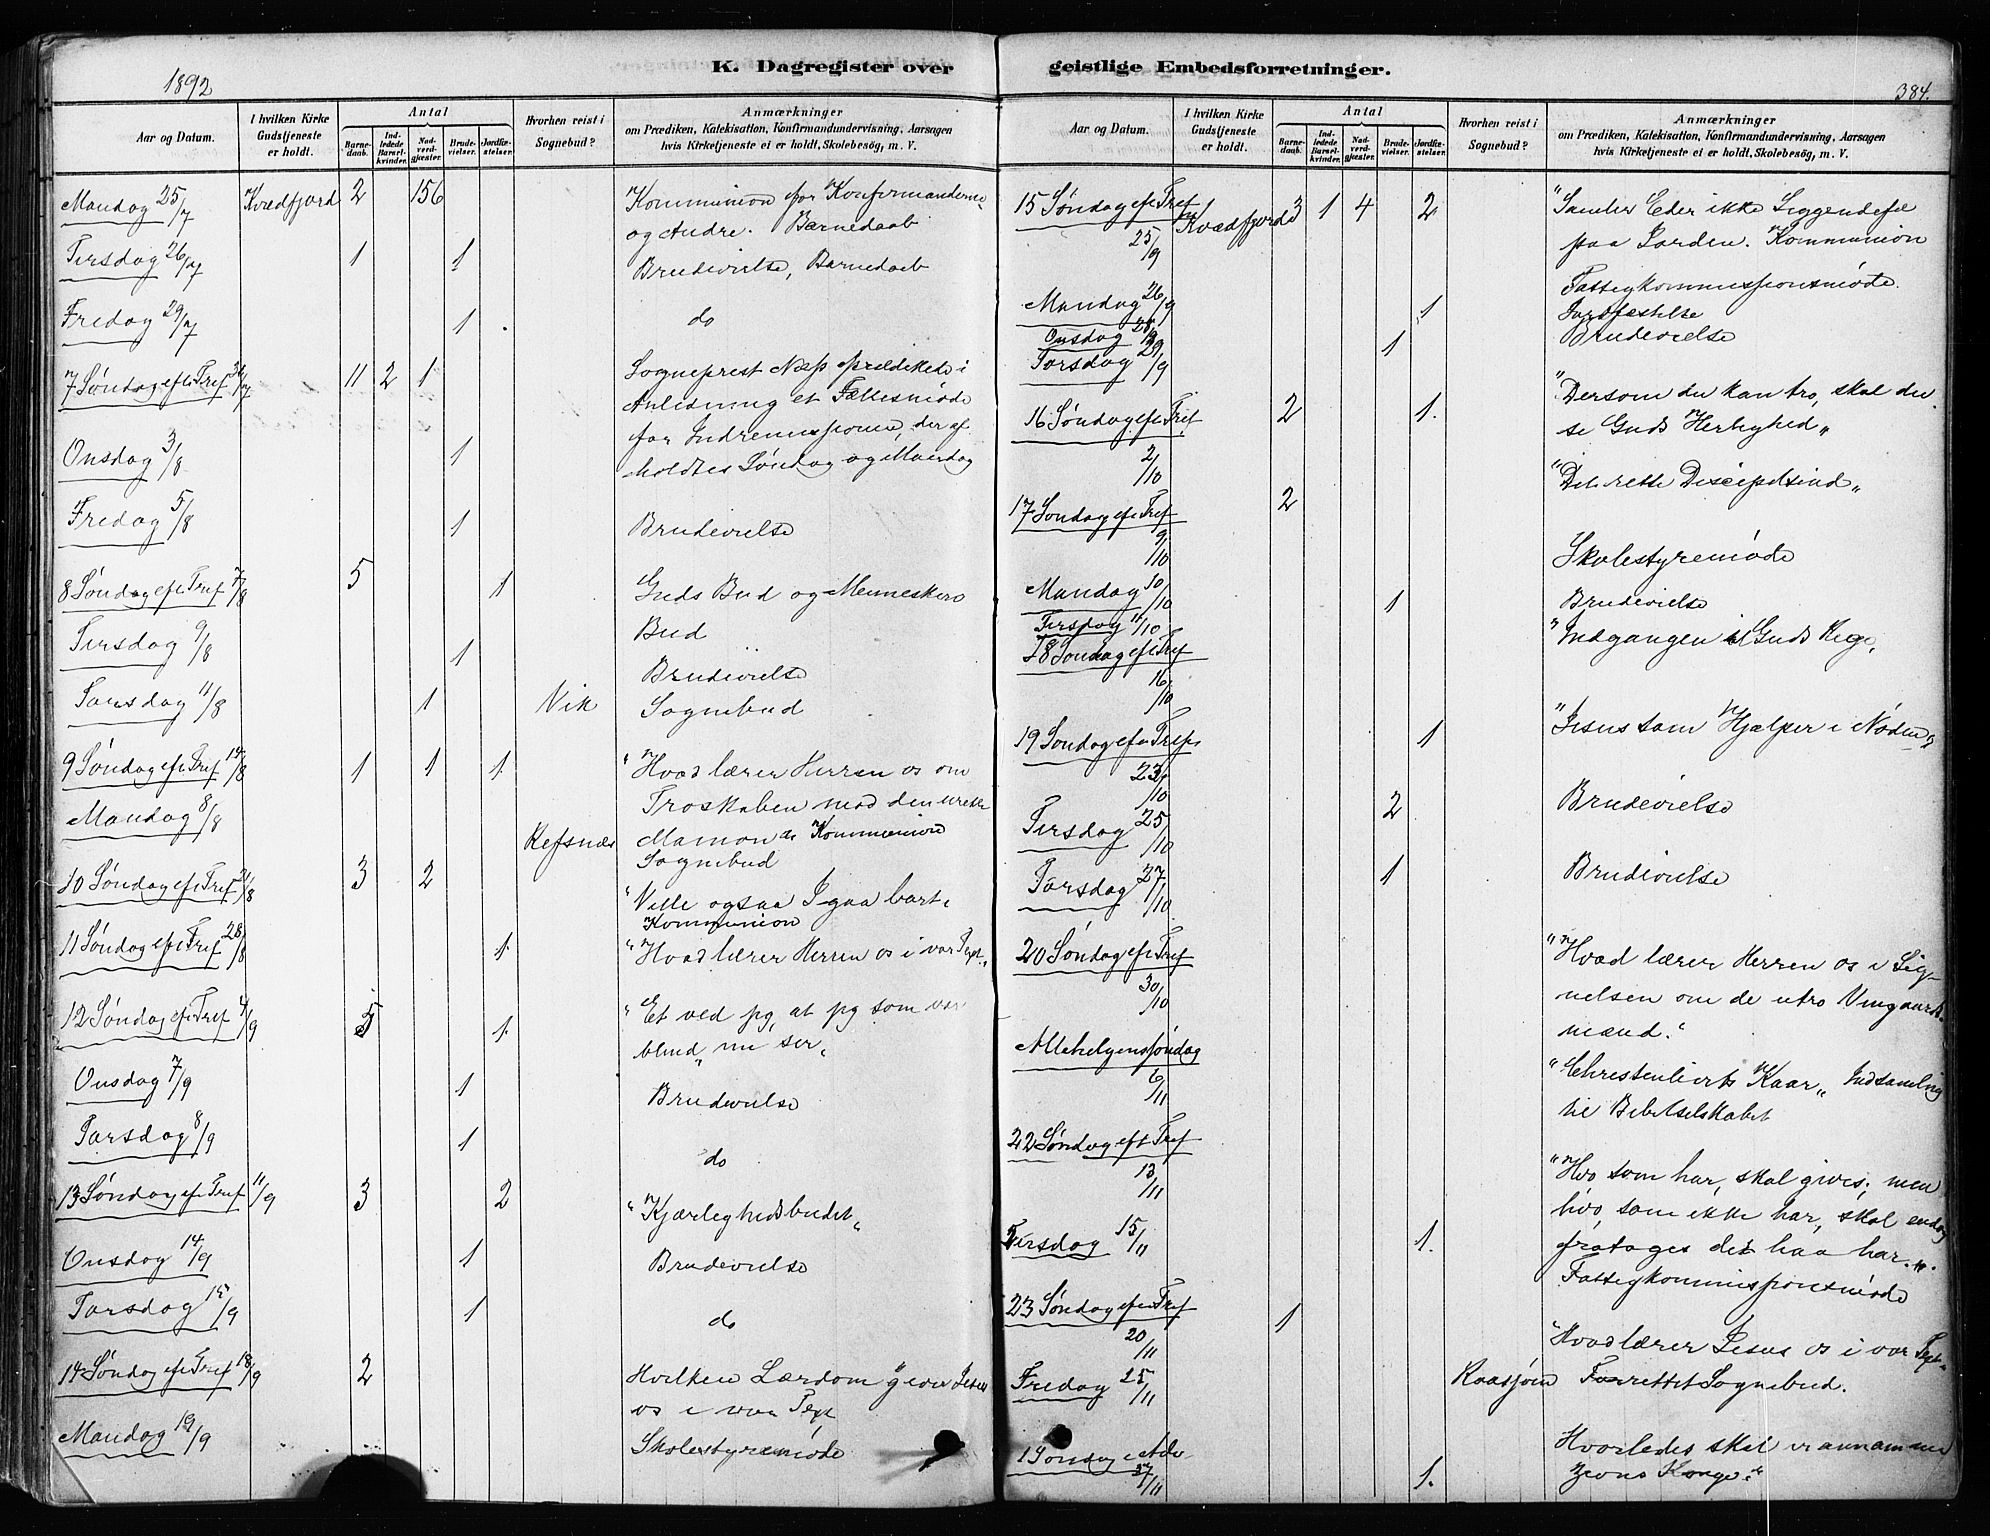 1892
K. Dagregister over
geistlige Embedsforretninger.
384.
Aar og Datum.
I hvilken Kirke Gudstjeneste er holdt.
Antal
Barnedaab.
Indledede Barselkvinder.
Nadverdgjester.
Brudevielser.
Jordfæstelser.
Hvorhen reist i Sognebud?
Anmærkninger
om Prædiken, Katekisation, Konfirmandundervisning, Aarsagen
hvis Kirketjeneste ei er holdt, Skolebesøg, m. V.
Mandag 25/7 Kvædfjord 2 156 Kommunion for Konfirmanderne
og Andre. Barnedaab
Tirsdag 26/7 1 1 Brudevielse, Barnedaab
Fredag 29/7 1 do
7 Søndag eft Tref 31/7 11 2 1 Sogneprest prædikede i
Anledning et Fællesmøde
for Indremissionen, der af
Onsdag 3/8 1 holdtes Søndag og Mandag
Fredag 5/8 1 Brudevielse
8 Søndag eft Tref 7/8 5 1 Guds Bud og Menneskers
Bud
Tirsdag 9/8 1 Brudevielse
Torsdag 11/8 1 Vik Sognebud
9 Søndag eft Tref 14/8 1 1 1 "Hvad lærer Herren os om
Troskaben mod den urette
Mandag 8/8 Refsnæs Mamon Kommunion
Sognebud
10 Søndag eft Tref 21/8 3 2 "Ville ogsaa I gaa bort"
Kommunion
11 Søndag eft Tref 28/8 1 "Hvad lærer Herren os i vor Text"
12 Søndag eft Tref 4/9 5 1 "Et ved jeg, at jeg som var
blind, nu ser"
Onsdag 7/9 1 Brudevielse
Torsdag 8/9 1 do
13 Søndag eft Tref 11/9 3 2 "Kjærlighedsbudet"
Onsdag 14/9 1 Brudevielse
Torsdag 15/9 1 do
14 Søndag eft Tref 18/9 2 Hvilken Lærdom giver Jesus
os i vor Text
Mandag 19/9 Skolestyremøde
Aar og Datum.
I hvilken Kirke Gudstjeneste er holdt.
Antal
Barnedaab.
Indledede Barselkvinder.
Nadverdgjester.
Brudevielser.
Jordfæstelser.
Hvorhen reist i Sognebud?
Anmærkninger
om Prædiken, Katekisation, Konfirmandundervisning, Aarsagen
hvis Kirketjeneste ei er holdt, Skolebesøg, m. V.
15 Søndag eft Tref 25/9 Kvædfjord 3 1 4 2 "Samler Eder ikke Liggendefæ
paa Jorden. Kommunion
Mandag 26/9 Fattigkommissionsmøde.
1 Jordfæstelse
Onsdag 28/9 1 Brudevielse
Torsdag 29/9
16 Søndag eft Tref 2/10 2 1. "Dersom du kan tro, skal du
se Guds Herlighed"
17 Søndag eft Tref 9/10 2 "Det rette Discipelsind"
Mandag 10/10 Skolestyremøde
Tirsdag 11/10 1 Brudevielse
18 Søndag eft Tref 16/10 "Indgangen til Guds Rige"
19 Søndag eft Tref 23/10 1 "Jesus som Hjælper i Nøden"
Tirsdag 25/10 2 Brudevielse
Torsdag 27/10 1 Brudevielse
20 Søndag eft Tref 30/10 "Hvad lærer Herren os i Lig-
nelsen om de utro Vingaards-
mænd."
Allehelgenssøndag 6/11 "Christenlivets Kaar" Indsamling
til Bibelselskabet
22 Søndag eft Tref 13/11 "Hvo som har, skal gives; men
hvo, som ikke har, skal endog
Tirsdag 15/11 1. fratages det han har."
Fattigkommissionsmøde
23 Søndag eft Tref 20/11 1 "Hvad lærer Jesus os i vor Text"
Fredag 25/11 Forrettet Sognebud.
1 Søndag i Adv 27/11 1. Hvorledes skal vi annamme
Zions Konge."